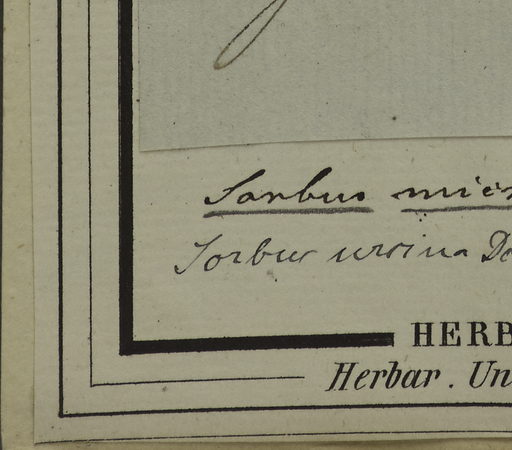 Sorbus micr
Sorbus ursina De
HERB
Herbar. Un